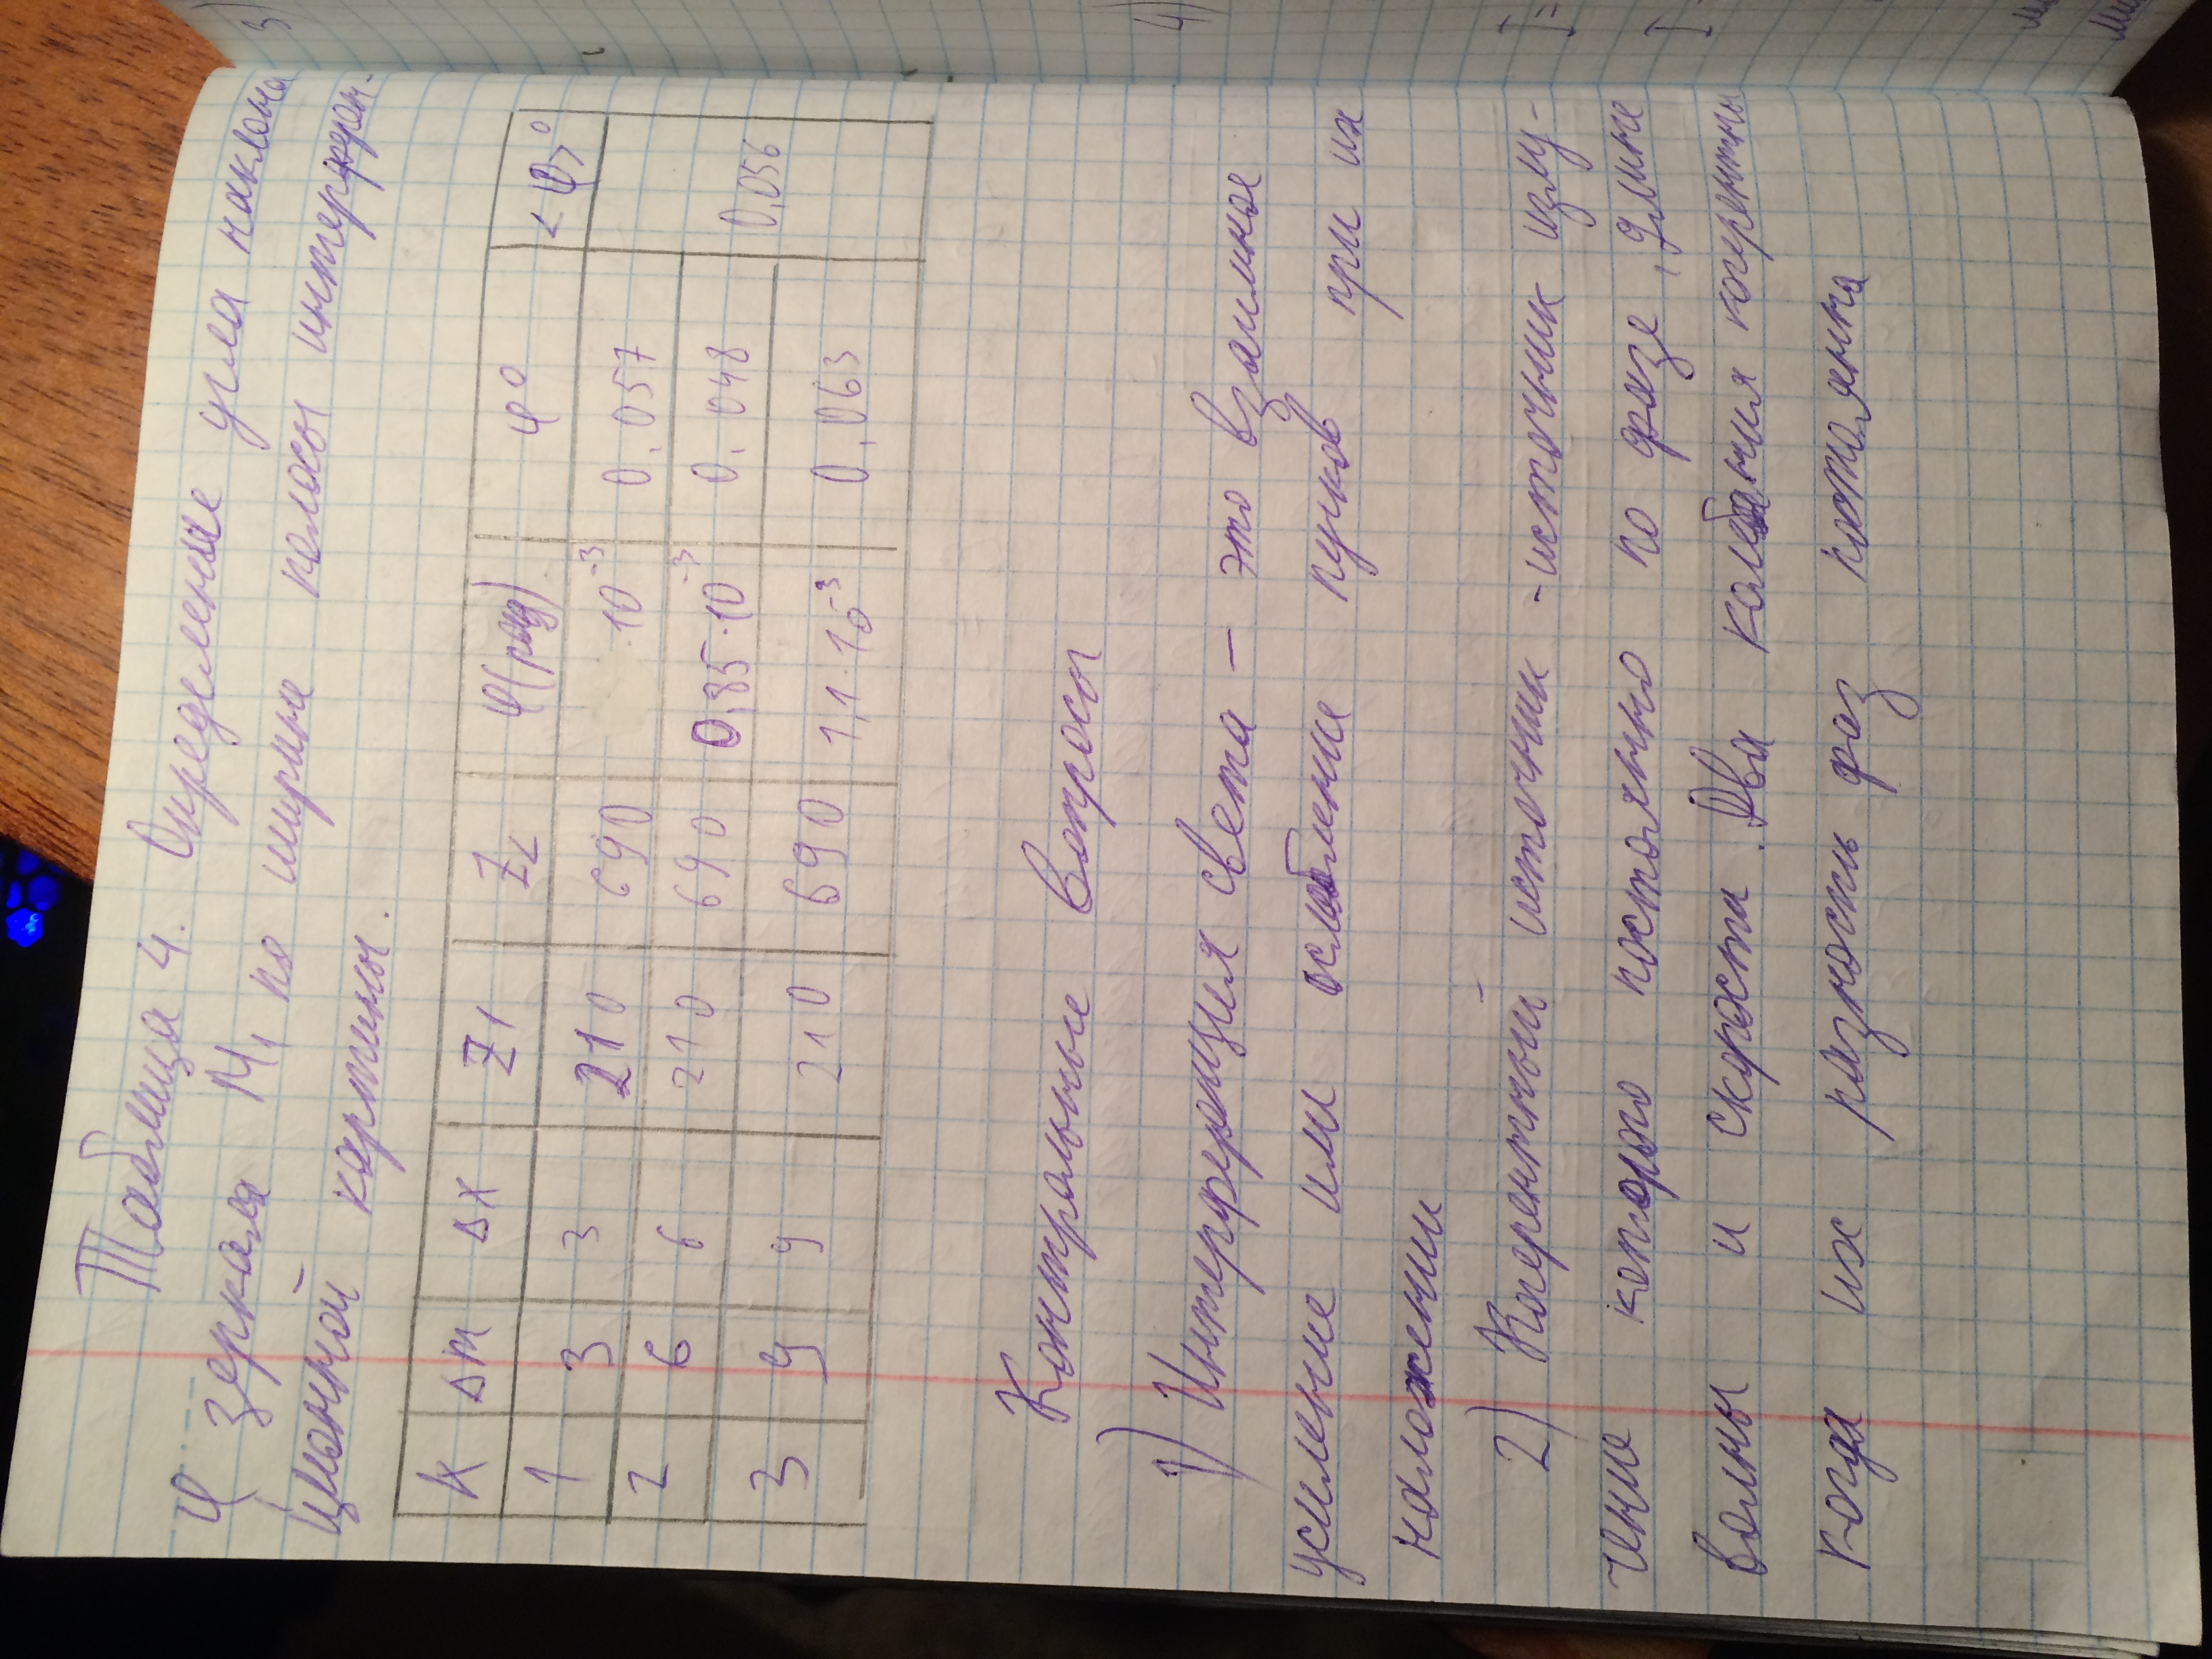 Таблица 4. Определение угла наклона
φ зеркала M₁ по ширине полосы интерферен-
ционной картины.
K Δm Δx Z₁ Z₂ φ(рад) φ⁰ <φ>⁰
1 3 3 210 690 ·10⁻³ 0,057
2 6 6 210 690 0,85·10⁻³ 0,048 0,056
3 9 9 210 690 1,1·10⁻³ 0,063
Контрольные вопросы
1) Интерференция света – это взаимное
усиление или ослабление пучков при их
наложении
2) Когерентный источник - источник излу-
чение которого постоянно по фазе, длине
волны и скорости. Два колебания когерентны
когда их разность фаз постоянна
3)
4)